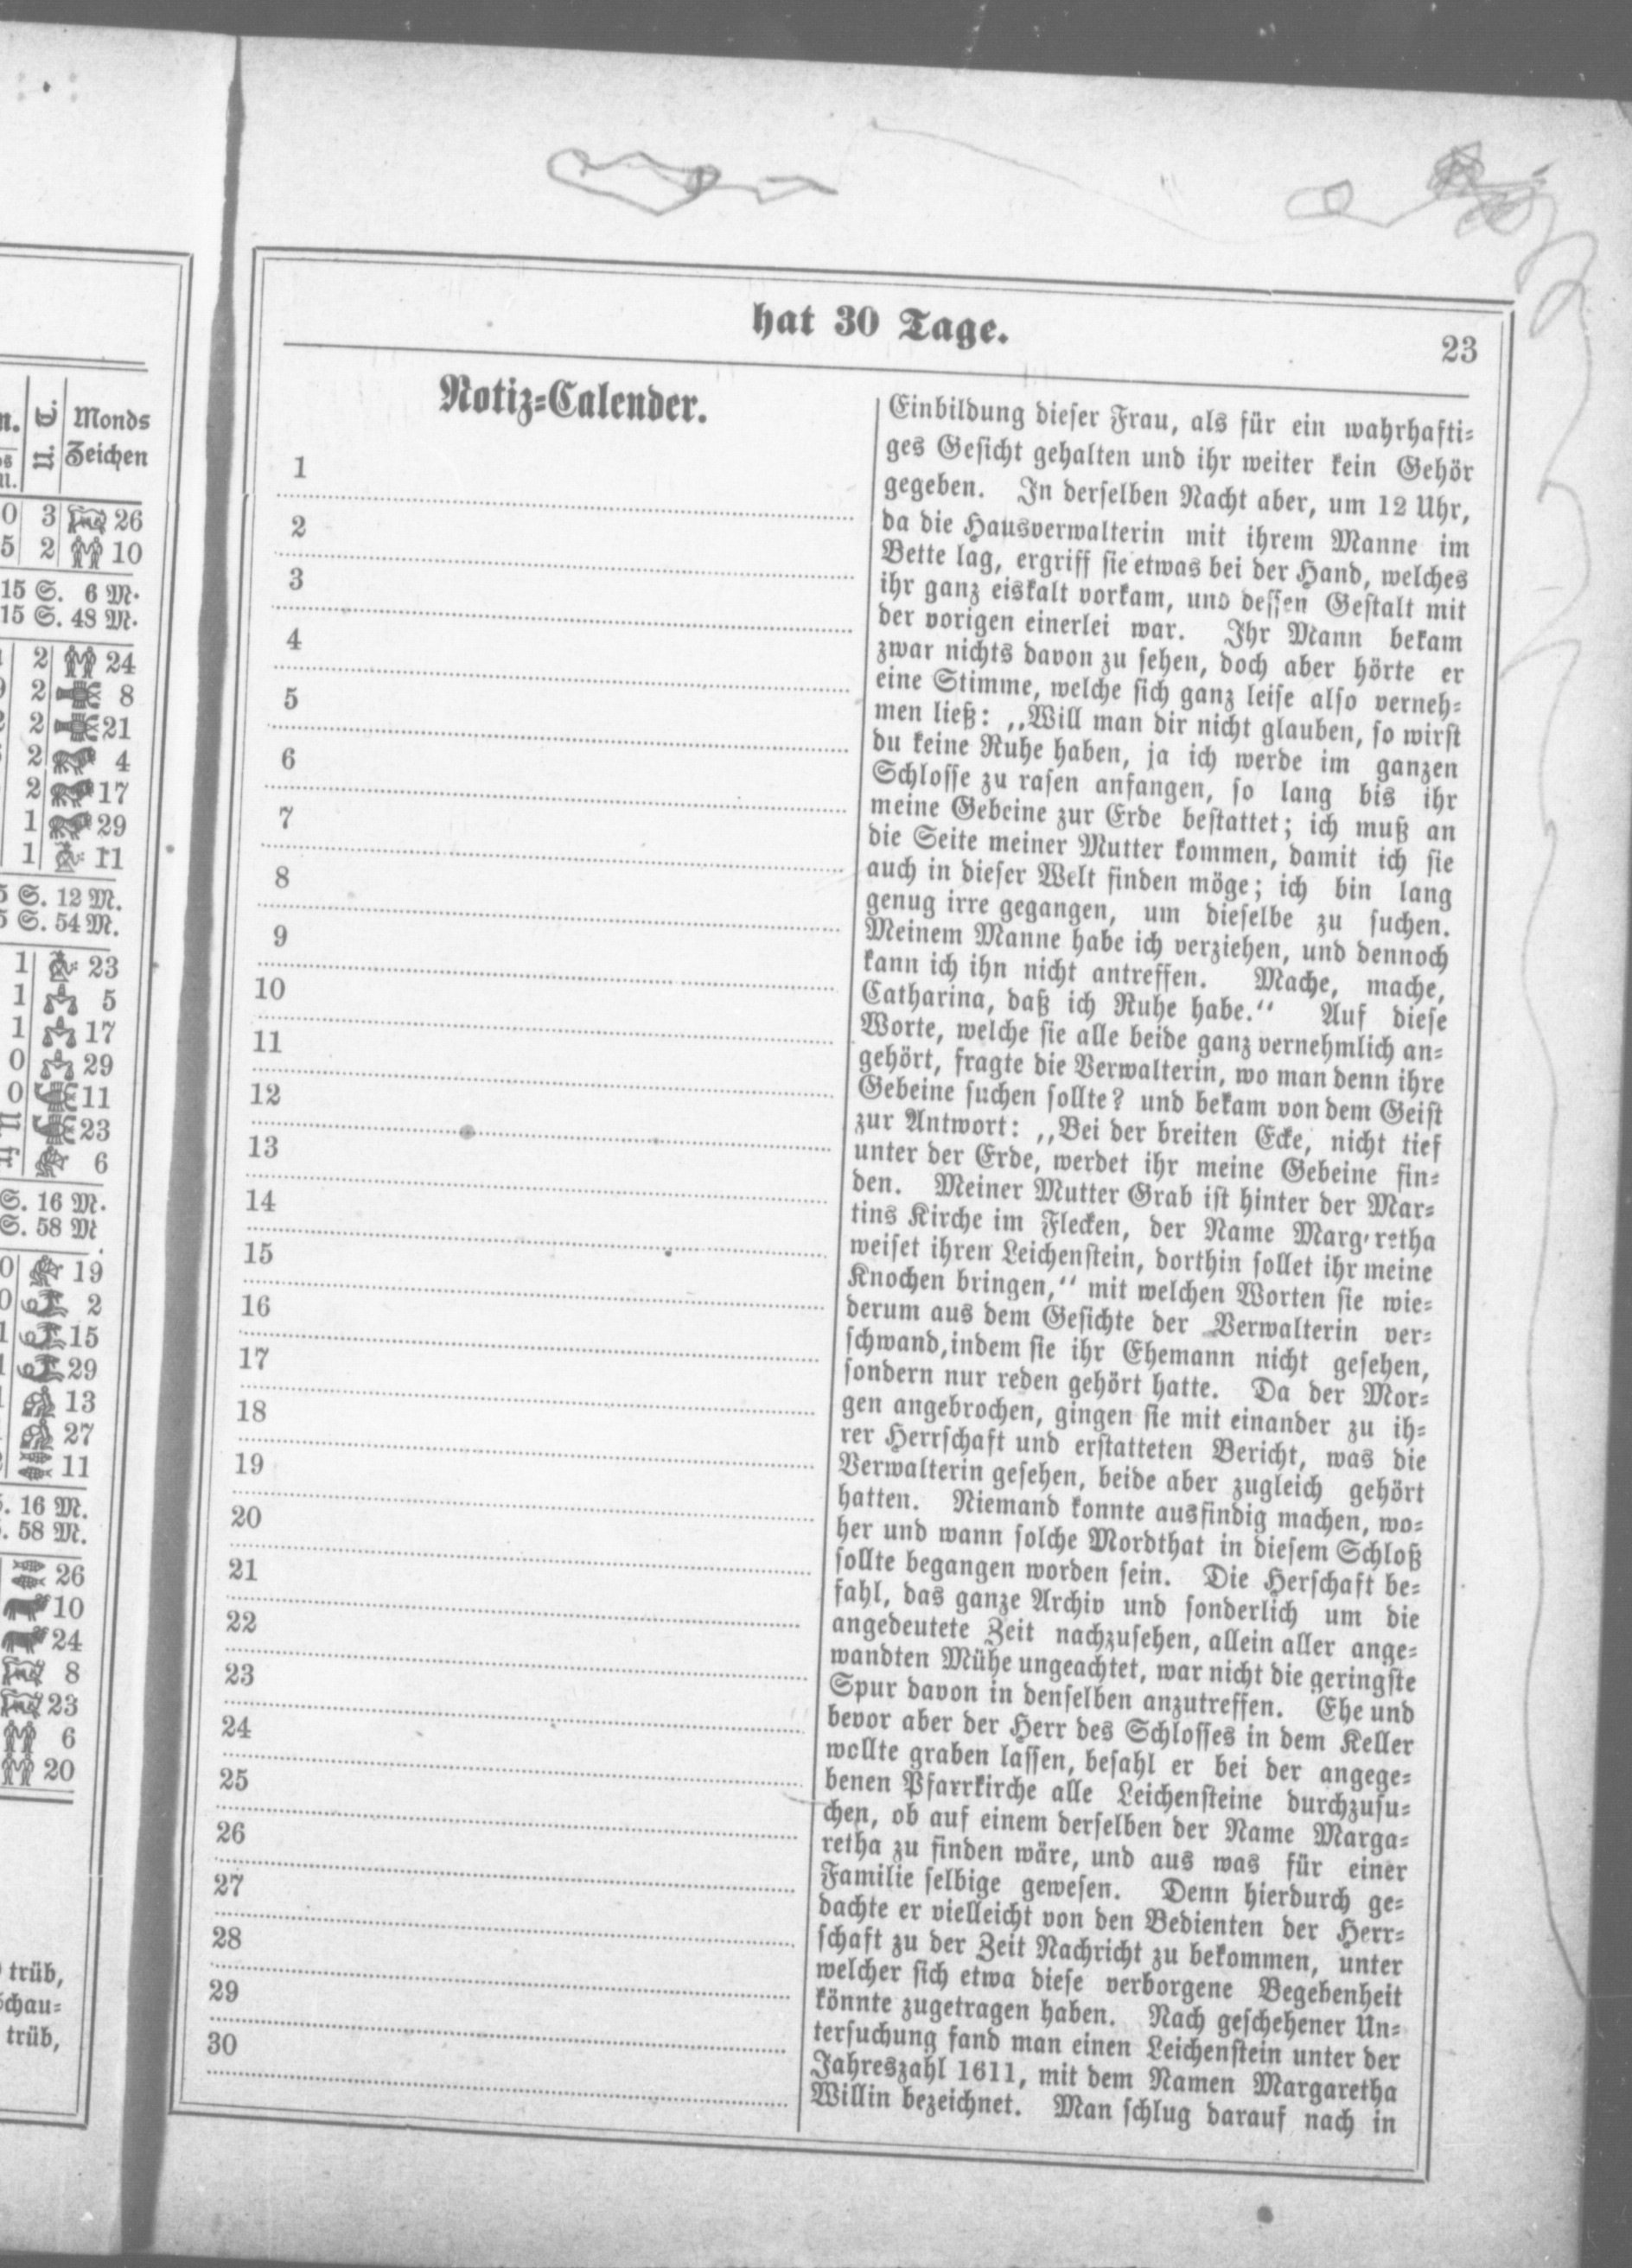 n. U. T. Monds
Zeichen
n.
0 3 26
5 2 10
15 S. 6 M.
15 S. 48 M.
2 24
2 8
2 21
2 4
2 17
1 29
1 11
5 S. 12 M.
5 S. 54 M.
1 23
1 5
1 17
0 29
0 11
23
6
S. 16 M.
S. 58 M
0 19
0 2
1 15
1 29
13
27
11
. 16 M.
. 58 M.
26
10
24
8
23
6
20
trüb,
Schau=
trüb,
hat 30 Tage.
23
Notiz=Calender.
1
2
3
4
5
6
7
8
9
10
11
12
13
14
15
16
17
18
19
20
21
22
23
24
25
26
27
28
29
30
Einbildung dieser Frau, als für ein wahrhafti=
ges Gesicht gehalten und ihr weiter kein Gehör
gegeben. In derselben Nacht aber, um 12 Uhr,
da die Hausverwalterin mit ihrem Manne im
Bette lag, ergriff sie etwas bei der Hand, welches
ihr ganz eiskalt vorkam, und dessen Gestalt mit
der vorigen einerlei war. Ihr Mann bekam
zwar nichts davon zu sehen, doch aber hörte er
eine Stimme, welche sich ganz leise also verneh=
men ließ: „Will man dir nicht glauben, so wirst
du keine Ruhe haben, ja ich werde im ganzen
Schlosse zu rasen anfangen, so lang bis ihr
meine Gebeine zur Erde bestattet; ich muß an
die Seite meiner Mutter kommen, damit ich sie
auch in dieser Welt finden möge; ich bin lang
genug irre gegangen, um dieselbe zu suchen.
Meinem Manne habe ich verziehen, und dennoch
kann ich ihn nicht antreffen. Mache, mache,
Catharina, daß ich Ruhe habe.“ Auf diese
Worte, welche sie alle beide ganz vernehmlich an=
gehört, fragte die Verwalterin, wo man denn ihre
Gebeine suchen sollte? und bekam von dem Geist
zur Antwort: „Bei der breiten Ecke, nicht tief
unter der Erde, werdet ihr meine Gebeine fin=
den. Meiner Mutter Grab ist hinter der Mar=
tins Kirche im Flecken, der Name Margaretha
weiset ihren Leichenstein, dorthin sollet ihr meine
Knochen bringen,“ mit welchen Worten sie wie=
derum aus dem Gesichte der Verwalterin ver=
schwand, indem sie ihr Ehemann nicht gesehen,
sondern nur reden gehört hatte. Da der Mor=
gen angebrochen, gingen sie mit einander zu ih=
rer Herrschaft und erstatteten Bericht, was die
Verwalterin gesehen, beide aber zugleich gehört
hatten. Niemand konnte ausfindig machen, wo=
her und wann solche Mordthat in diesem Schloß
sollte begangen worden sein. Die Herschaft be=
fahl, das ganze Archiv und sonderlich um die
angedeutete Zeit nachzusehen, allein aller ange=
wandten Mühe ungeachtet, war nicht die geringste
Spur davon in denselben anzutreffen. Ehe und
bevor aber der Herr des Schlosses in dem Keller
wollte graben lassen, befahl er bei der angege=
benen Pfarrkirche alle Leichensteine durchzusu=
chen, ob auf einem derselben der Name Marga=
retha zu finden wäre, und aus was für einer
Familie selbige gewesen. Denn hierdurch ge=
dachte er vielleicht von den Bedienten der Herr=
schaft zu der Zeit Nachricht zu bekommen, unter
welcher sich etwa diese verborgene Begebenheit
könnte zugetragen haben. Nach geschehener Un=
tersuchung fand man einen Leichenstein unter der
Jahreszahl 1611, mit dem Namen Margaretha
Willin bezeichnet. Man schlug darauf nach in